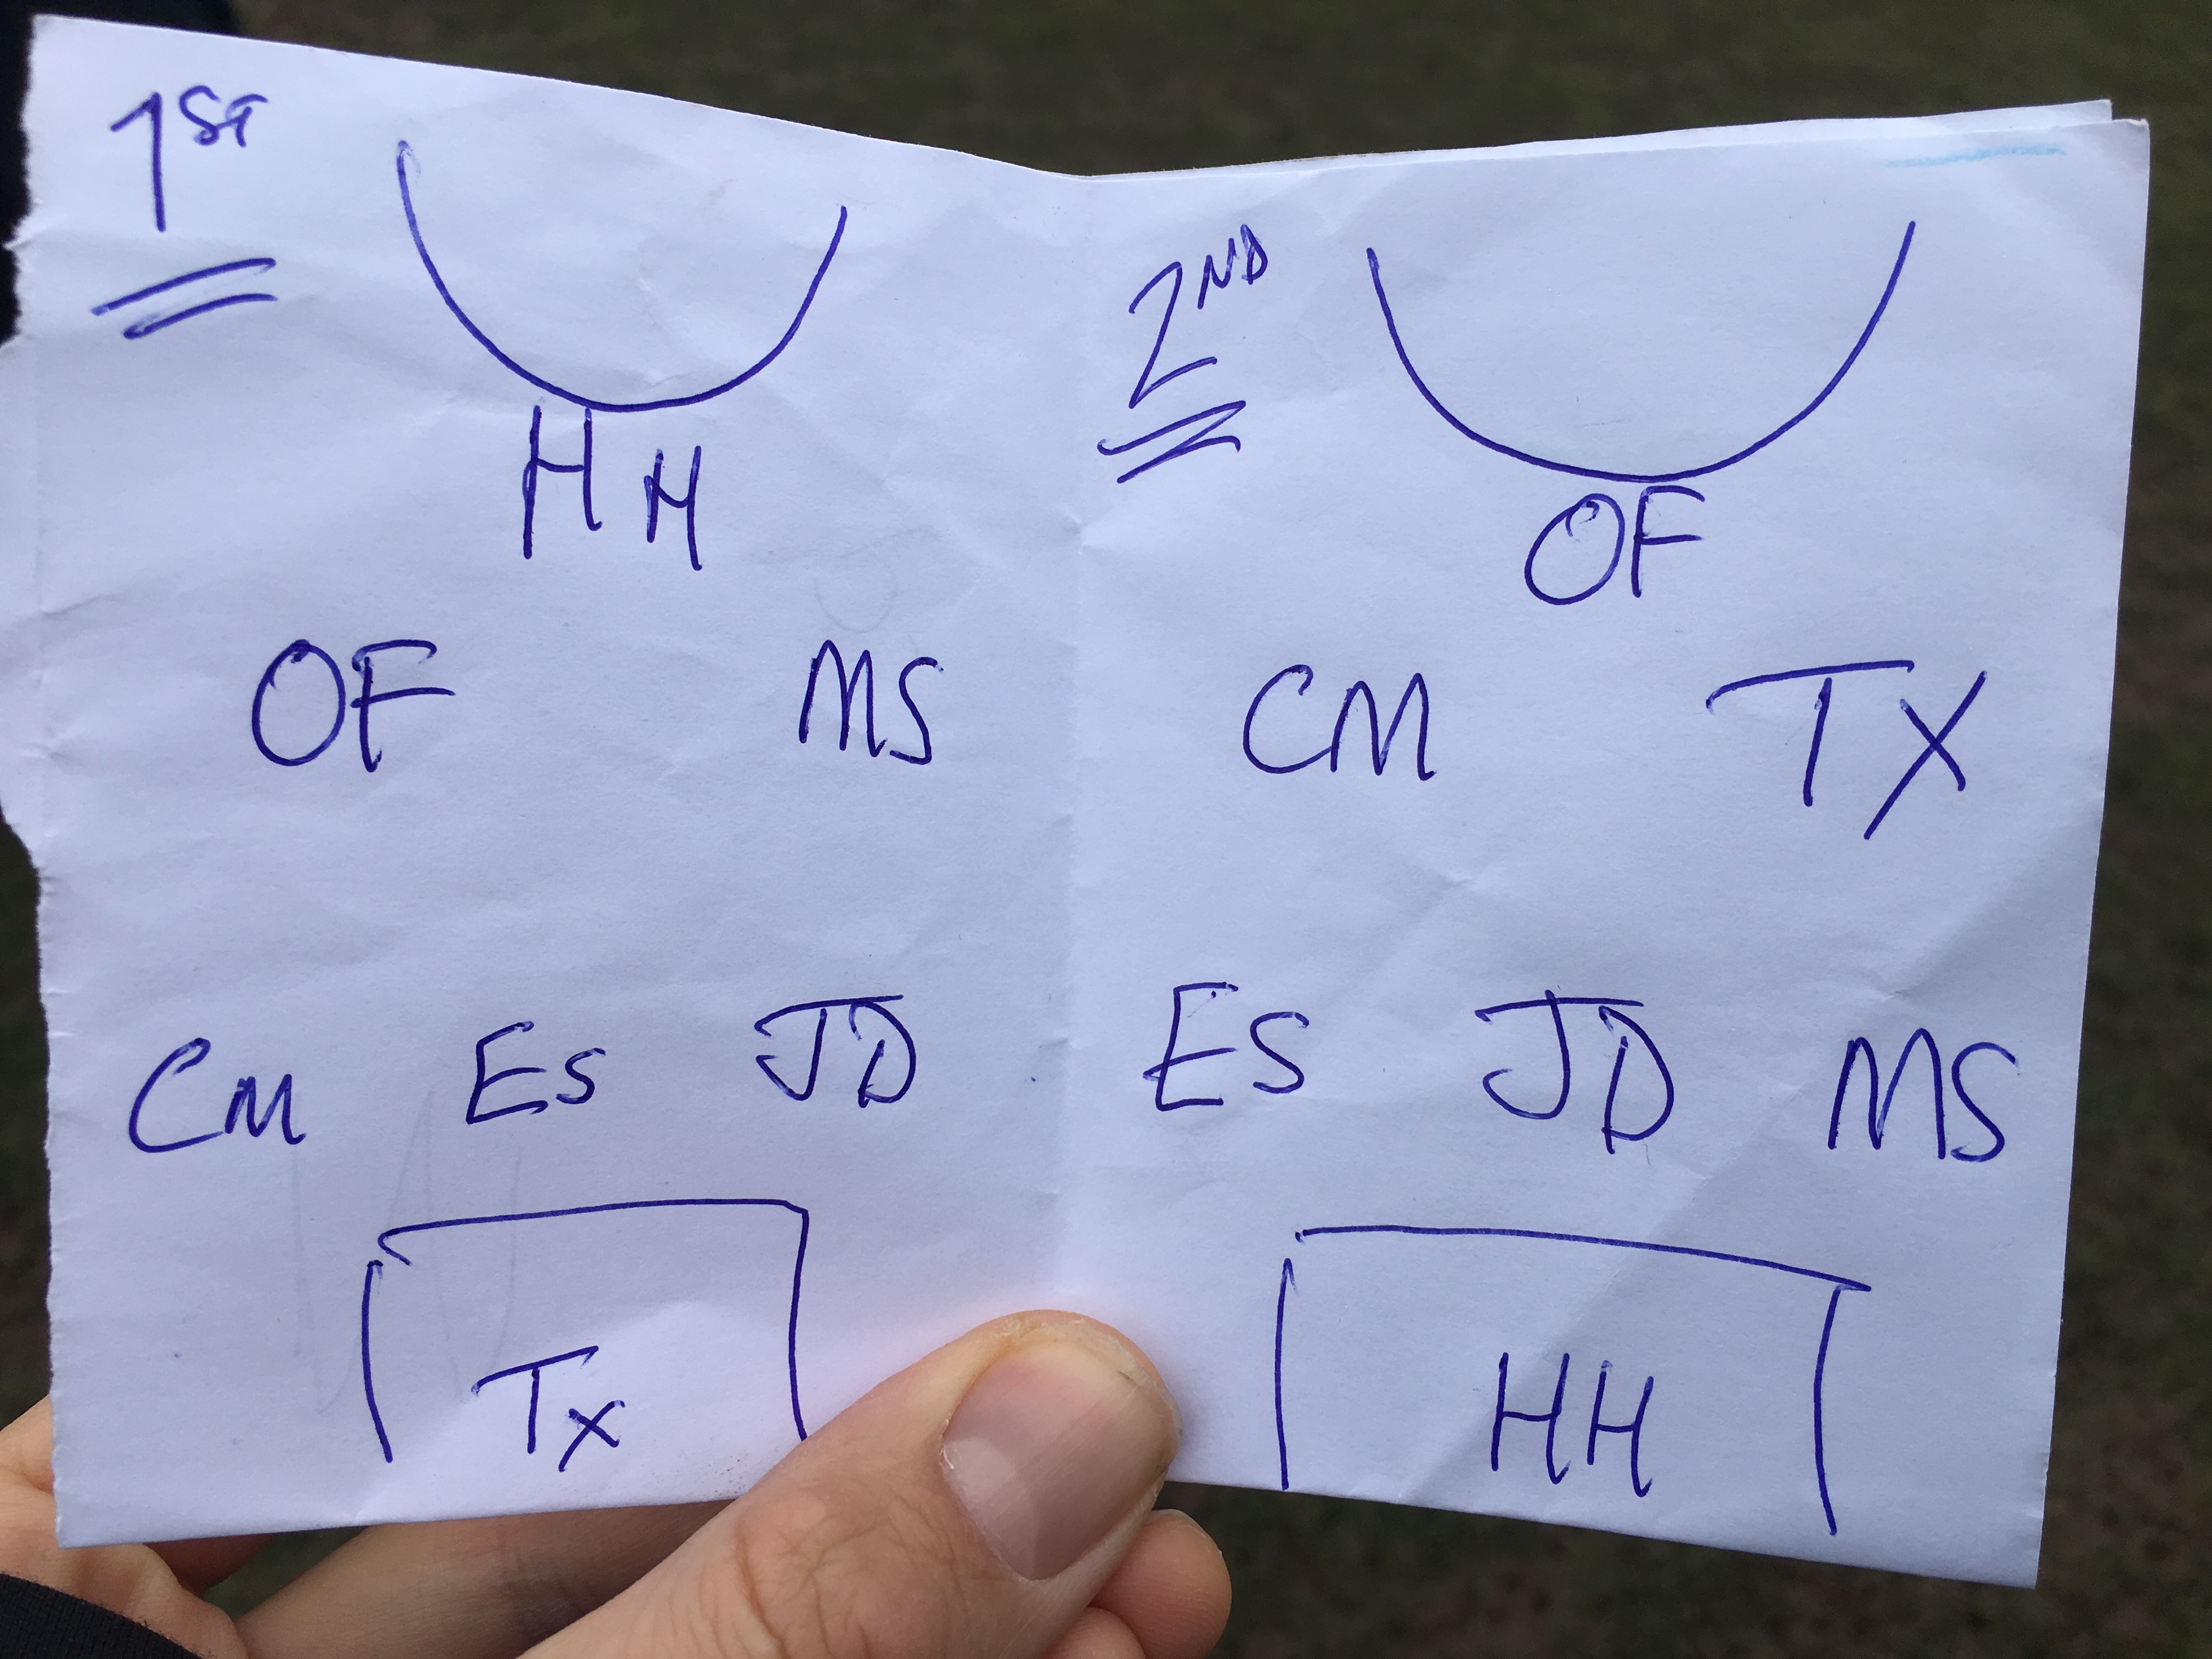 1ST
HH
OF MS
CM ES JD
TX
2ND
OF
CM TX
ES JD MS
HH